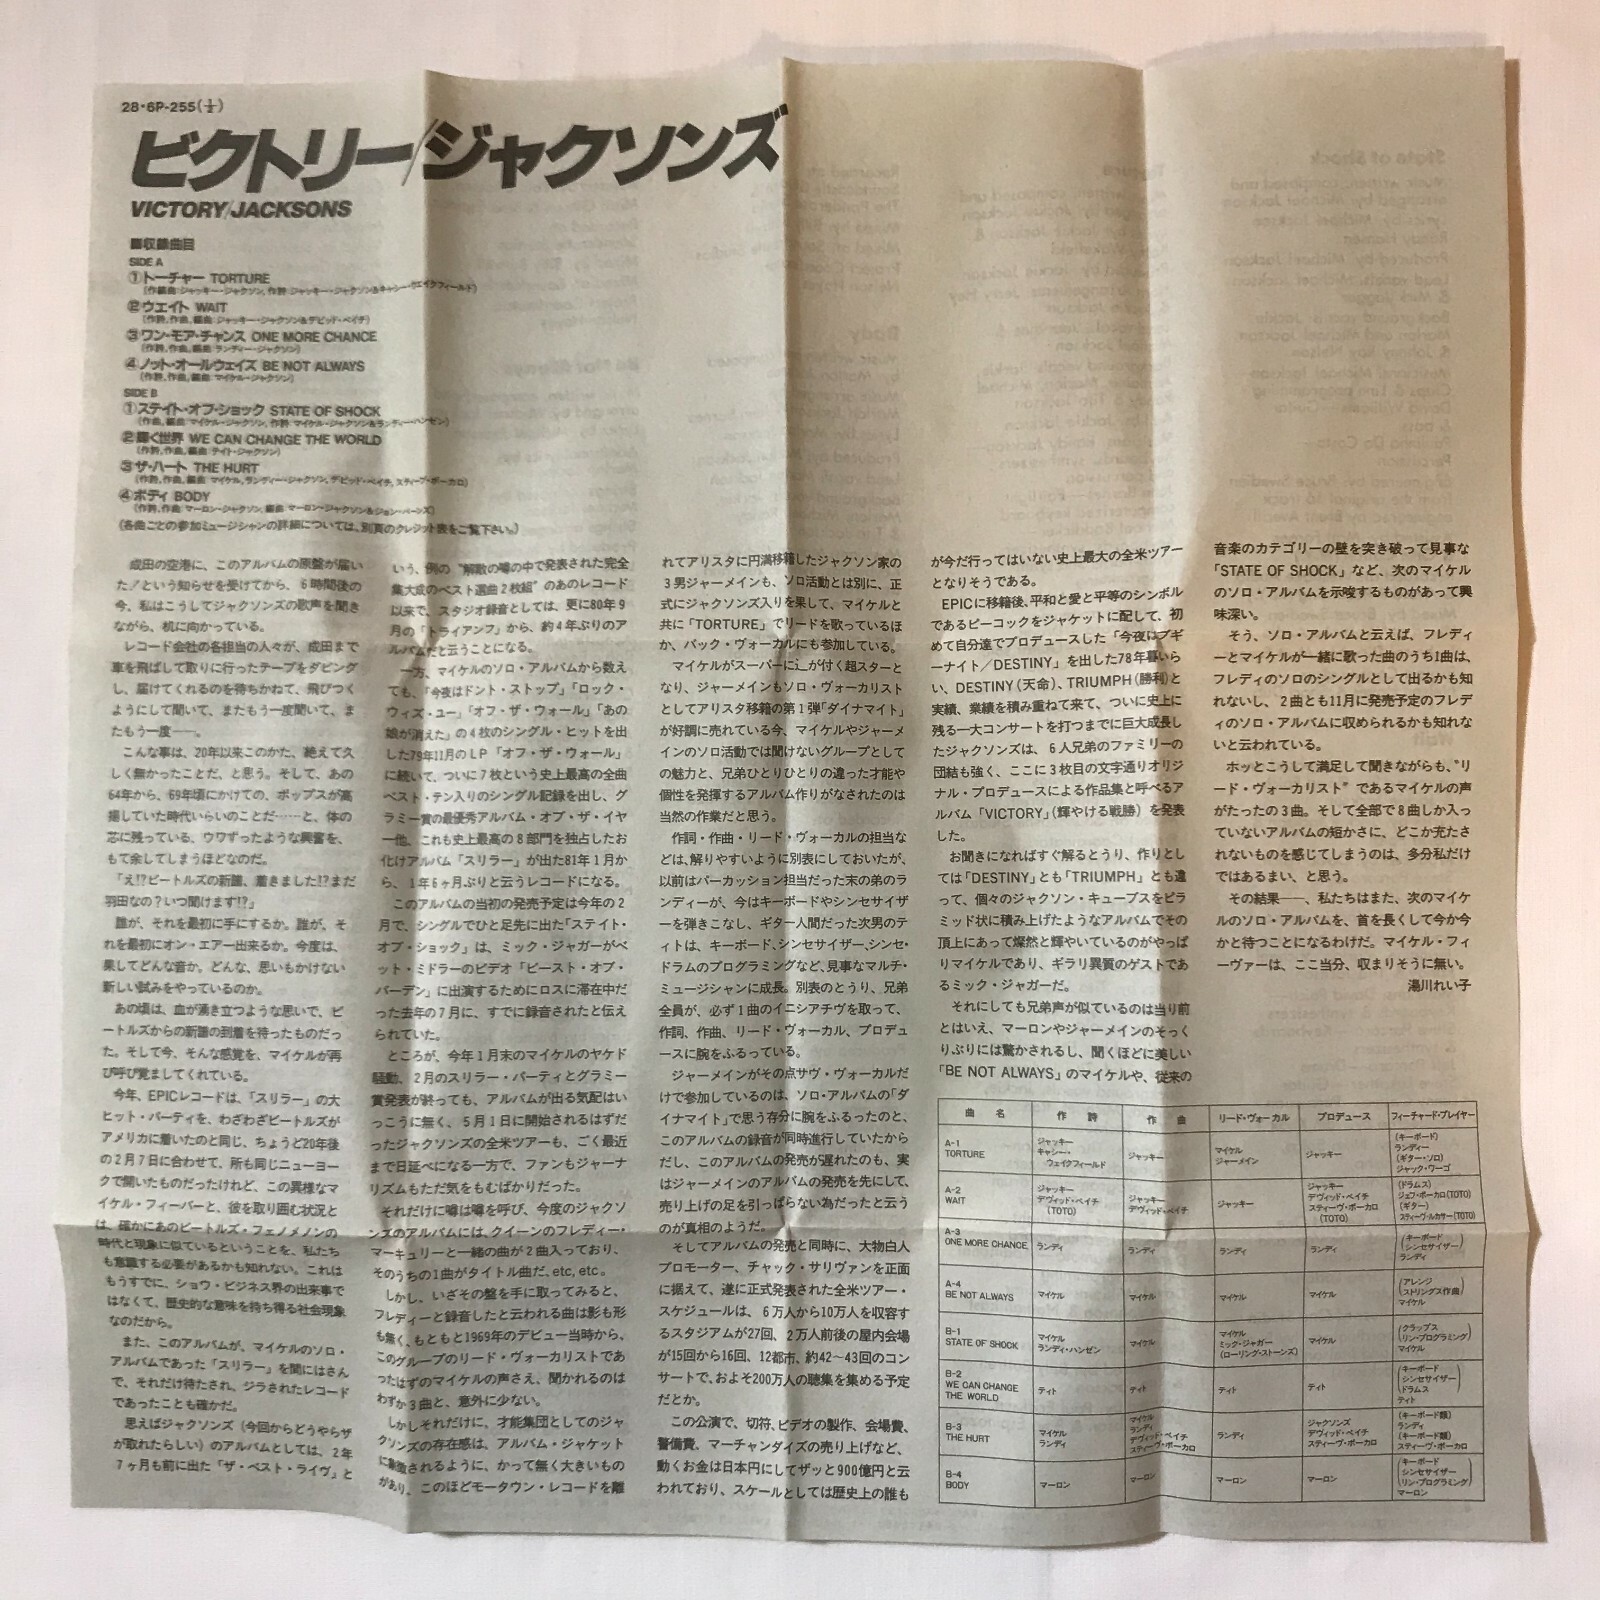 28・6P-255(½)
ビクトリー/ジャクソンズ
VICTORY/JACKSONS
■収録曲目
SIDE A
①トーチャー TORTURE
(作編曲:ジャッキー・ジャクソン, 作詩:ジャッキー・ジャクソン&キャシー・ウエイクフィールド)
②ウエイト WAIT
(作詩, 作曲, 編曲:ジャッキー・ジャクソン&デビッド・ペイチ)
③ワン・モア・チャンス ONE MORE CHANCE
(作詩, 作曲, 編曲:ランディー・ジャクソン)
④ノット・オールウェイズ BE NOT ALWAYS
(作詩, 作曲, 編曲:マイケル・ジャクソン)
SIDE B
①ステイト・オブ・ショック STATE OF SHOCK
(作曲, 編曲:マイケル・ジャクソン, 作詩:マイケル・ジャクソン&ランディー・ハンゼン)
②輝く世界 WE CAN CHANGE THE WORLD
(作詩, 作曲, 編曲:テイト・ジャクソン)
③ザ・ハート THE HURT
(作詩, 作曲, 編曲:マイケル, ランディー・ジャクソン, デビッド・ペイチ, スティーブ・ポーカロ)
④ボディ BODY
(作詩, 作曲:マーロン・ジャクソン, 編曲:マーロン・ジャクソン&ジョン・バーンズ)
(各曲ごとの参加ミュージシャンの詳細については、別頁のクレジット表をご覧下さい。)
成田の空港に、このアルバムの原盤が届い
た!という知らせを受けてから、6時間後の
今、私はこうしてジャクソンズの歌声を聞き
ながら、机に向かっている。
レコード会社の各担当の人々が、成田まで
車を飛ばして取りに行ったテープをダビング
し、届けてくれるのを待ちかねて、飛びつく
ようにして聞いて、またもう一度聞いて、ま
たもう一度――。
こんな事は、20年以来このかた、絶えて久
しく無かったことだ、と思う。そして、あの
64年から、69年頃にかけての、ポップスが高
揚していた時代いらいのことだ……と、体の
芯に残っている、ウワずったような興奮を、
もて余してしまうほどなのだ。
「え!?ビートルズの新譜、着きました!?まだ
羽田なの?いつ聞けます!?」
誰が、それを最初に手にするか。誰が、そ
れを最初にオン・エアー出来るか。今度は、
果してどんな音か。どんな、思いもかけない
新しい試みをやっているのか。
あの頃は、血が湧き立つような思いで、ビ
ートルズからの新譜の到着を待ったものだっ
た。そして今、そんな感覚を、マイケルが再
び呼び覚ましてくれている。
今年、EPICレコードは、「スリラー」の大
ヒット・パーティを、わざわざビートルズが
アメリカに着いたのと同じ、ちょうど20年後
の2月7日に合わせて、所も同じニューヨー
クで開いたものだったけれど、この異様なマ
イケル・フィーバーと、彼を取り囲む状況と
は、確かにあのビートルズ・フェノメノンの
時代と現象に似ているということを、私たち
も意識する必要があるかも知れない。これは
もうすでに、ショウ・ビジネス界の出来事で
はなくて、歴史的な意味を持ち得る社会現象
なのだから。
また、このアルバムが、マイケルのソロ・
アルバムであった「スリラー」を間にはさん
で、それだけ待たされ、ジラされたレコード
であったことも確かだ。
思えばジャクソンズ(今回からどうやらザ
が取れたらしい)のアルバムとしては、2年
7ヶ月も前に出た「ザ・ベスト・ライヴ」と
いう、例の“解散の噂の中で発表された完全
集大成のベスト選曲2枚組”のあのレコード
以来で、スタジオ録音としては、更に80年9
月の「トライアンフ」から、約4年ぶりのア
ルバムだと云うことになる。
一方、マイケルのソロ・アルバムから数え
ても、「今夜はドント・ストップ」「ロック・
ウィズ・ユー」「オフ・ザ・ウォール」「あの
娘が消えた」の4枚のシングル・ヒットを出
した79年11月のLP「オフ・ザ・ウォール」
に続いて、ついに7枚という史上最高の全曲
ベスト・テン入りのシングル記録を出し、グ
ラミー賞の最優秀アルバム・オブ・ザ・イヤ
ー他、これも史上最高の8部門を独占したお
化けアルバム「スリラー」が出た81年1月か
ら、1年6ヶ月ぶりと云うレコードになる。
このアルバムの当初の発売予定は今年の2
月で、シングルでひと足先に出た「ステイト・
オブ・ショック」は、ミック・ジャガーがベ
ット・ミドラーのビデオ「ビースト・オブ・
バーデン」に出演するためにロスに滞在中だ
った去年の7月に、すでに録音されたと伝え
られていた。
ところが、今年1月末のマイケルのヤケド
騒動、2月のスリラー・パーティとグラミー
賞発表が終っても、アルバムが出る気配はい
っこうに無く、5月1日に開始されるはずだ
ったジャクソンズの全米ツアーも、ごく最近
まで日延べになる一方で、ファンもジャーナ
リズムもただ気をもむばかりだった。
それだけに噂は噂を呼び、今度のジャクソ
ンズのアルバムには、クイーンのフレディー・
マーキュリーと一緒の曲が2曲入っており、
そのうちの1曲がタイトル曲だ、etc, etc。
しかし、いざその盤を手に取ってみると、
フレディーと録音したと云われる曲は影も形
も無く、もともと1969年のデビュー当時から、
このグループのリード・ヴォーカリストであ
ったはずのマイケルの声さえ、聞かれるのは
わずか3曲と、意外に少ない。
しかしそれだけに、才能集団としてのジャ
クソンズの存在感は、アルバム・ジャケット
に象徴されるように、かって無く大きいもの
があり、このほどモータウン・レコードを離
れてアリスタに円満移籍したジャクソン家の
3男ジャーメインも、ソロ活動とは別に、正
式にジャクソンズ入りを果して、マイケルと
共に「TORTURE」でリードを歌っているほ
か、バック・ヴォーカルにも参加している。
マイケルがスーパーに⊥が付く超スターと
なり、ジャーメインもソロ・ヴォーカリスト
としてアリスタ移籍の第1弾「ダイナマイト」
が好調に売れている今、マイケルやジャーメ
インのソロ活動では聞けないグループとして
の魅力と、兄弟ひとりひとりの違った才能や
個性を発揮するアルバム作りがなされたのは
当然の作業だと思う。
作詞・作曲・リード・ヴォーカルの担当な
どは、解りやすいように別表にしておいたが、
以前はパーカッション担当だった末の弟のラ
ンディーが、今はキーボードやシンセサイザ
ーを弾きこなし、ギター人間だった次男のテ
ィトは、キーボード、シンセサイザー、シンセ・
ドラムのプログラミングなど、見事なマルチ・
ミュージシャンに成長。別表のとうり、兄弟
全員が、必ず1曲のイニシアチヴを取って、
作詞、作曲、リード・ヴォーカル、プロデュ
ースに腕をふるっている。
ジャーメインがその点サヴ・ヴォーカルだ
けで参加しているのは、ソロ・アルバムの「ダ
イナマイト」で思う存分に腕をふるったのと、
このアルバムの録音が同時進行していたから
だし、このアルバムの発売が遅れたのも、実
はジャーメインのアルバムの発売を先にして、
売り上げの足を引っぱらない為だったと云う
のが真相のようだ。
そしてアルバムの発売と同時に、大物白人
プロモーター、チャック・サリヴァンを正面
に据えて、遂に正式発表された全米ツアー・
スケジュールは、6万人から10万人を収容す
るスタジアムが27回、2万人前後の屋内会場
が15回から16回、12都市、約42〜43回のコン
サートで、およそ200万人の聴集を集める予定
だとか。
この公演で、切符、ビデオの製作、会場費、
警備費、マーチャンダイズの売り上げなど、
動くお金は日本円にしてザッと900億円と云
われており、スケールとしては歴史上の誰も
が今だ行ってはいない史上最大の全米ツアー
となりそうである。
EPICに移籍後、平和と愛と平等のシンボル
であるピーコックをジャケットに配して、初
めて自分達でプロデュースした「今夜はブギ
ーナイト/DESTINY」を出した78年暮いら
い、DESTINY(天命)、TRIUMPH(勝利)と
実績、業績を積み重ねて来て、ついに史上に
残る一大コンサートを打つまでに巨大成長し
たジャクソンズは、6人兄弟のファミリーの
団結も強く、ここに3枚目の文字通りオリジ
ナル・プロデュースによる作品集と呼べるア
ルバム「VICTORY」(輝やける戦勝)を発表
した。
お聞きになればすぐ解るとうり、作りとし
ては「DESTINY」とも「TRIUMPH」とも違
って、個々のジャクソン・キューブスをピラ
ミッド状に積み上げたようなアルバムでその
頂上にあって燦然と輝やいているのがやっぱ
りマイケルであり、ギラリ異質のゲストであ
るミック・ジャガーだ。
それにしても兄弟声が似ているのは当り前
とはいえ、マーロンやジャーメインのそっく
りぶりには驚かされるし、聞くほどに美しい
「BE NOT ALWAYS」のマイケルや、従来の
音楽のカテゴリーの壁を突き破って見事な
「STATE OF SHOCK」など、次のマイケル
のソロ・アルバムを示唆するものがあって興
味深い。
そう、ソロ・アルバムと云えば、フレディ
ーとマイケルが一緒に歌った曲のうち1曲は、
フレディのソロのシングルとして出るかも知
れないし、2曲とも11月に発売予定のフレデ
ィのソロ・アルバムに収められるかも知れな
いと云われている。
ホッとこうして満足して聞きながらも、“リ
ード・ヴォーカリスト”であるマイケルの声
がたったの3曲。そして全部で8曲しか入っ
ていないアルバムの短かさに、どこか充たさ
れないものを感じてしまうのは、多分私だけ
ではあるまい、と思う。
その結果――、私たちはまた、次のマイケ
ルのソロ・アルバムを、首を長くして今か今
かと待つことになるわけだ。マイケル・フィ
ーヴァーは、ここ当分、収まりそうに無い。
湯川れい子
曲 名 作 詩 作 曲 リード・ヴォーカル プロデュース フィーチャード・プレイヤー
A-1 TORTURE ジャッキー キャシー・ウェイクフィールド ジャッキー マイケル ジャーメイン ジャッキー (キーボード) ランディー (ギター・ソロ) ジャック・ワーゴ
A-2 WAIT ジャッキー デヴィッド・ペイチ (TOTO) ジャッキー デヴィッド・ペイチ ジャッキー ジャッキー デヴィッド・ペイチ スティーヴ・ポーカロ (TOTO) (ドラムス) ジェフ・ポーカロ(TOTO) (ギター) スティーヴ・ルカサー(TOTO)
A-3 ONE MORE CHANCE ランディ ランディ ランディ ランディ (キーボード シンセサイザー) ランディ
A-4 BE NOT ALWAYS マイケル マイケル マイケル マイケル (アレンジ ストリングス作曲) マイケル
B-1 STATE OF SHOCK マイケル ランディ・ハンゼン マイケル マイケル ミック・ジャガー (ローリング・ストーンズ) マイケル (クラップス リン・プログラミング) マイケル
B-2 WE CAN CHANGE THE WORLD ティト ティト ティト ティト (キーボード シンセサイザー ドラムス) ティト
B-3 THE HURT マイケル ランディ マイケル ランディ デヴィッド・ペイチ スティーヴ・ポーカロ ランディ ジャクソンズ デヴィッド・ペイチ スティーヴ・ポーカロ (キーボード類) ランディ (キーボード類) スティーヴ・ポーカロ
B-4 BODY マーロン マーロン マーロン マーロン (キーボード シンセサイザー リン・プログラミング) マーロン